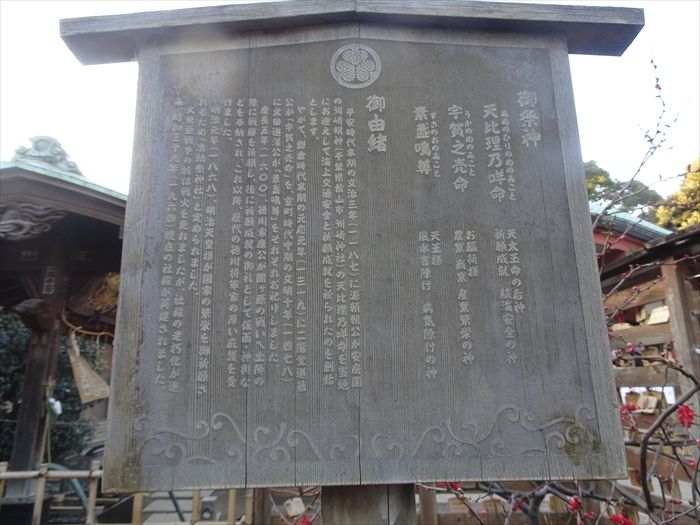 御祭神
あめのひりのめのみこと
天比理乃咩命　天太玉命の后神
祈願成就　航海安全の神
うかのめのみこと
宇賀之売命　お稲荷様
農業商業　産業繁栄の神
すさのをのみこと
素盞嗚尊　天王様
風水害除け　病気除けの神
御由緒
平安時代末期の文治三年（一一八七）に源頼朝公が安房国
の洲崎明神（千葉県館山市洲崎神社）の天比理乃咩命を当地
にお迎えして海上交通安全と祈願成就を祈られたのを創始
とします。
やがて、鎌倉時代末期の元応元年（一三一九）に二階堂道蘊
公が（宇賀之売命）を、室町時代中期の文明十年（一四七八）
に太田道灌公が（素盞嗚尊）をそれぞれお祀りしました。
慶長五年（一六〇〇）、徳川家康公が関ヶ原の戦いへ出陣の
際に戦勝を祈願し、後に祈願成就の御礼として仮面・神輿な
どを奉納され、これ以降、歴代の徳川将軍家の厚い庇護を受
けました。
明治元年（一八六八）、明治天皇様が国家の繁栄を御祈願さ
れるため「准勅祭神社」と定められました。
大東亜戦争の折、戦火を免れましたが、社殿の老朽化が進
み、昭和三十九年（一九六四）現在の社殿が再建されました。